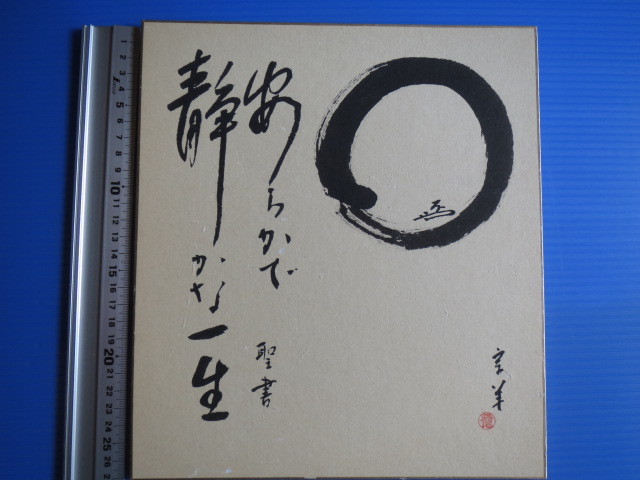 安らかで
静かな一生
聖書
1 2 3 4 5 6 7 8 9 10 11 12 13 14 15 16 17 18 19 20 21 22 23 24 25 26